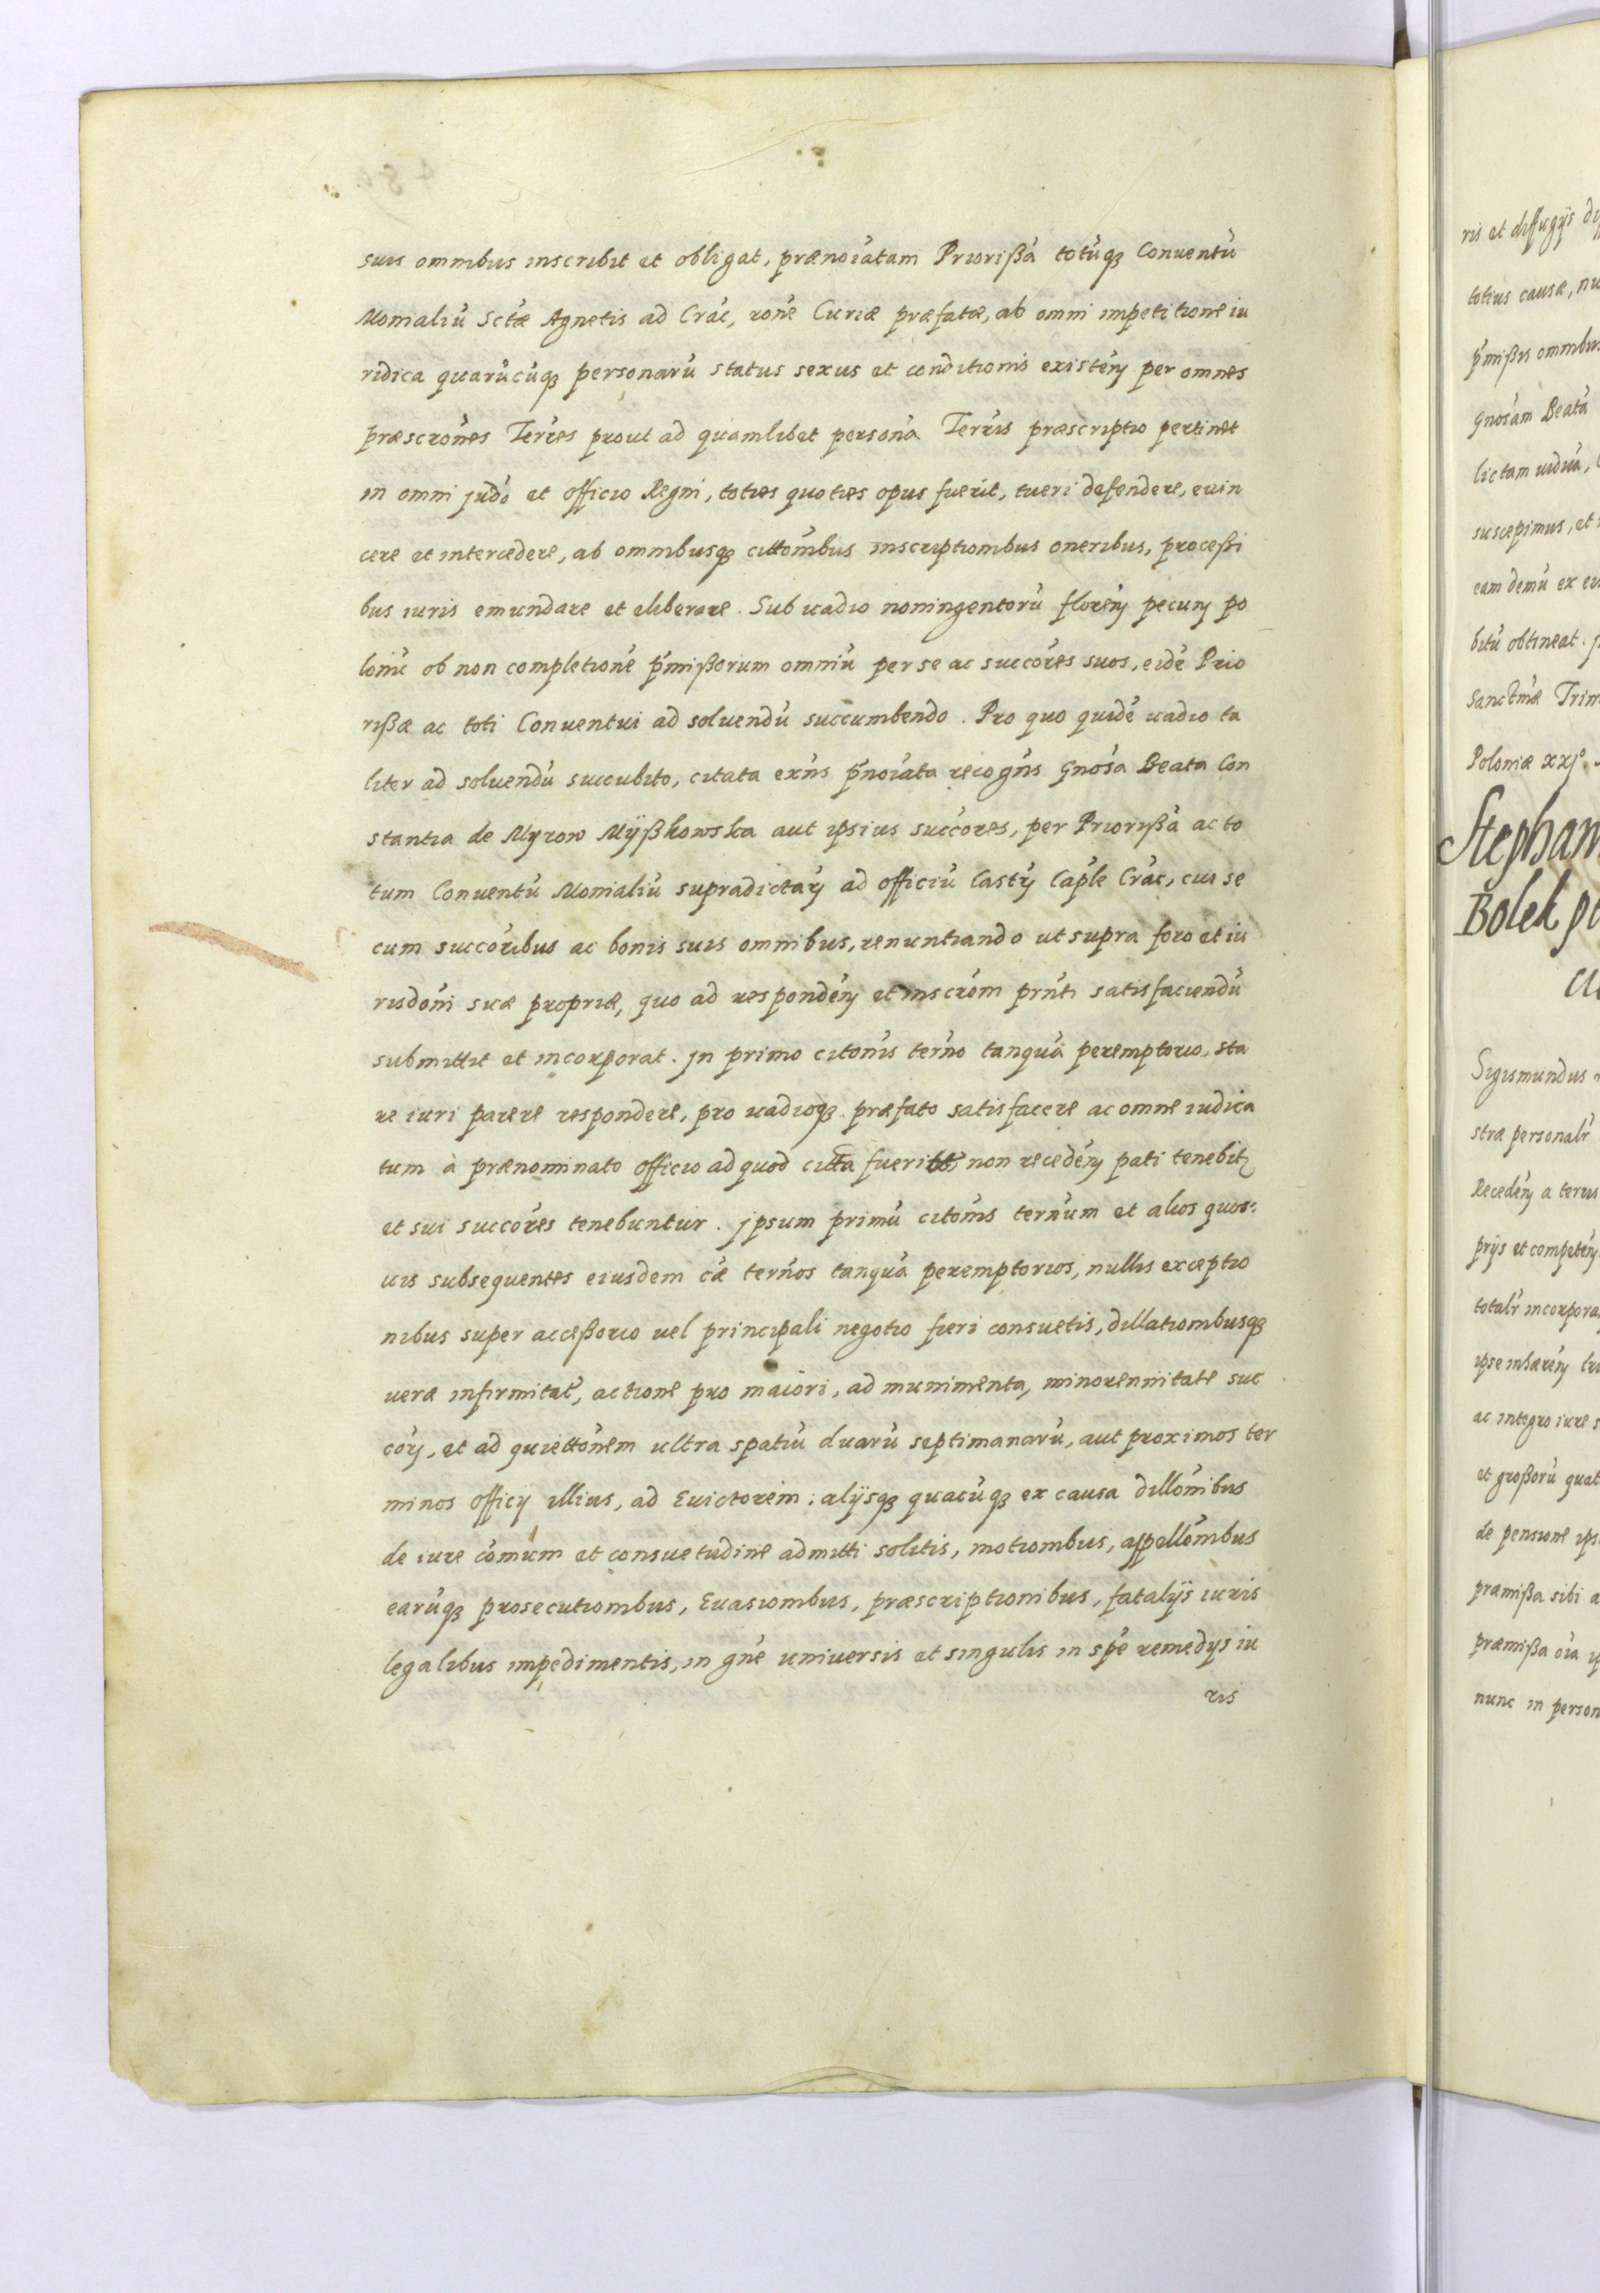 suis omnibus inscribit et obligat, prænoĩatam Priorißã totũq3 Conventũ
Monialiũ Sctæ Agnetis ad Crac, rone Curiæ præfatæ, ab omni impetitione iu
ridica quarũcũq3 personarũ status sexus et conditionis existen per omnes
præscrones Terres prout ad quamlibet personã Terris præscriptio pertinet
in omni judo et officio Regni, toties quoties opus fuerit, tueri defendere, evin
cere et intercedere, ab omnibusq3 cittombus inscriptionibus oneribus, proceßi
bus iuris emundare et eliberare. Sub vadio noningentorũ floren pecun po
lonic ob non completionẽ pmißorum omniũ per se ac succores suos, eidẽ Prio
rißæ ac toti Conventui ad solvendũ succumbendo. Pro quo quidẽ vadio ta
liter ad solvendũ succubito, citata exns pnoĩata recogns Gnosa Beata Con
stantia de Myrow Mÿßkowska aut ipsius succores, per Priorißã ac to
tum Conventũ Monialiũ supradictar ad officiũ Castr Caple Crac, cui se
cum succoribus ac bonis suis omnibus, renuntiando ut supra foro et iu
risdoni suæ propriæ, quo ad responden et inscrom prnti satisfaciendũ
submittit et incorporat. Jn primo citonis terno tanquã peremptorio, sta
re iuri parere respondere, pro vadioq3 præfato satisfacere ac omne iudica
tum à prænominato officio ad quod citta fuerit non receden pati tenebit
et sui succores tenebuntur. Jpsum primũ citonis ternum et alios quos:
vis subsequentes eiusdem cæ ternos tanquã peremptorios, nullis exceptio
nibus super acceßorio vel principali negotio fieri consuetis, dillationibusq3
veræ infirmitat, actione pro maiori, ad munimenta, minorennitate suc
cor, et ad quiettonem ultra spatiũ duarũ septimanarũ, aut proximos ter
minos officij illius, ad Evictorem; alÿsq3 quacũq3 ex causa dillonibus
de iure comuni et consuetudine admitti solitis, motionibus, appellonibus
earũq3 prosecutionibus, Evasionibus, præscriptionibus, fatalÿs iuris
legalibus impedimentis, in gne universis et singulis in spe remedÿs iu
ris
ris et diffugÿs
totius causæ,
pmißis omnibus
Gnosam Beatã
lictam viduã,
suscepimus, et
eam demũ ex
bitũ obtineat.
Sanctmæ
Poloniæ xxjº.
Stephan
Bolek
Sigismundus
stræ personalr
Receden a terris
prÿs et competen
totalr incorpora
ipse inhæren
ac integro iure
et großorũ quat
de pensione
pramißa sibi a
præmißa oĩa
nunc in person